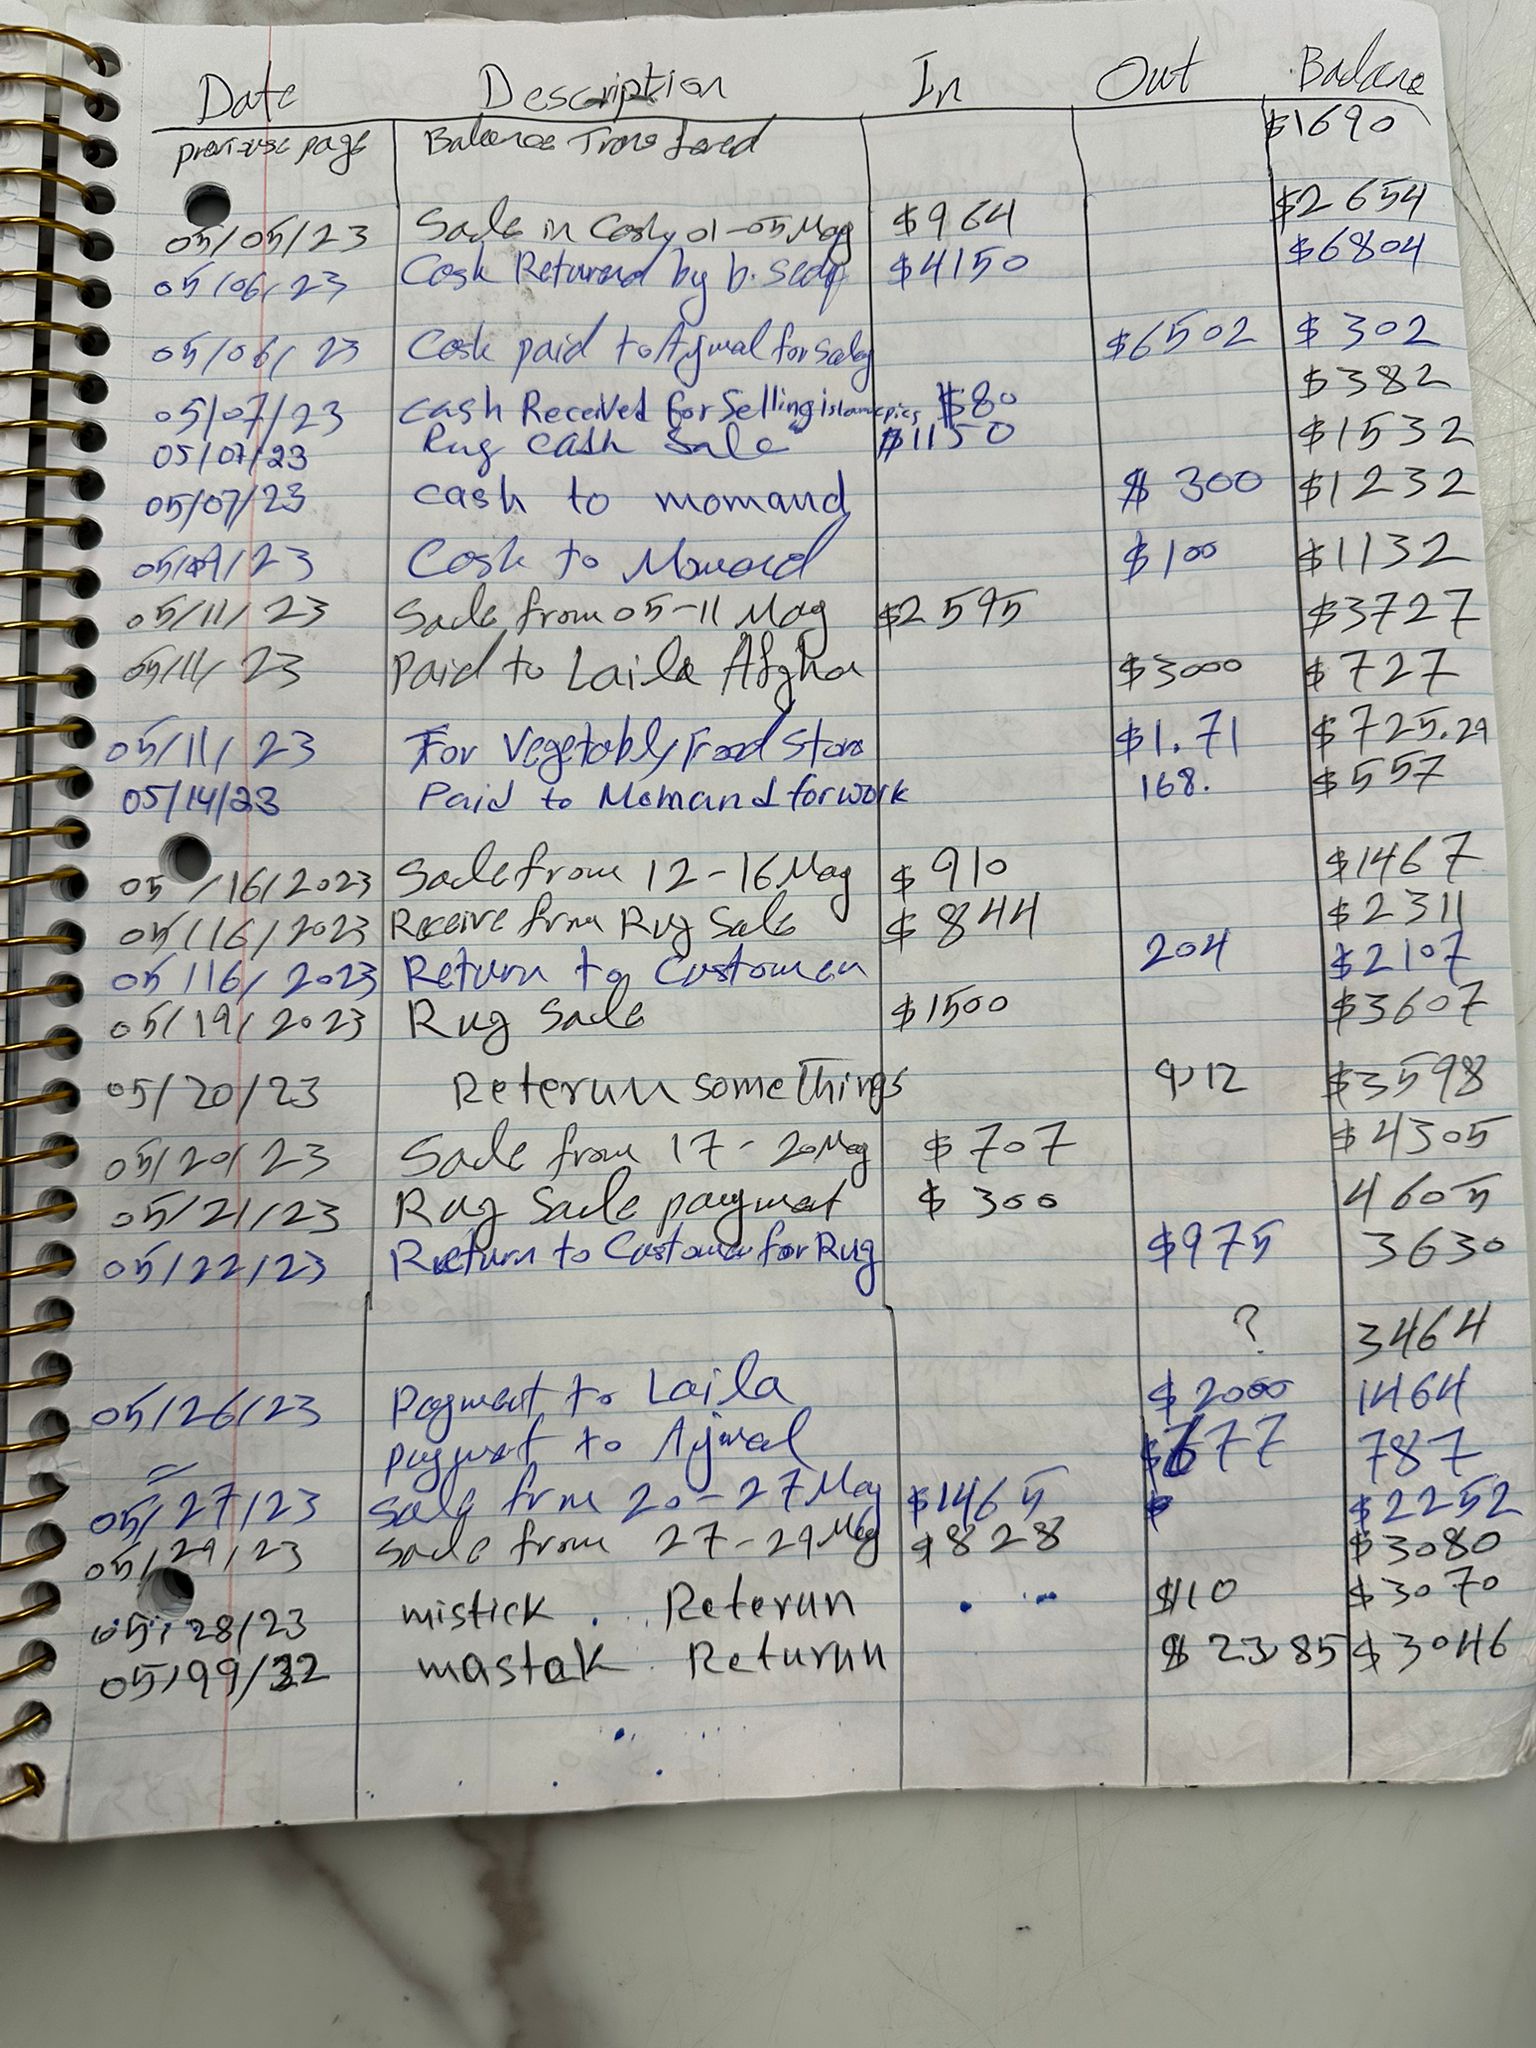 Date Description In Out Balance
previuse page Balance Transfered $1690
05/05/23 Sale in Cash, 01-05 May $964 $2654
05/06/23 Cash Returned by b. $4150 $6804
05/06/23 Cash paid to Ajmal for $6502 $302
05/07/23 cash Received for Selling islamic pics $80 $382
05/07/23 Rug cash Sale $1150 $1532
05/07/23 cash to momand $300 $1232
05/09/23 Cash to Momand $100 $1132
05/11/23 Sale from 05-11 May $2595 $3727
05/11/23 Paid to Laila Afghan $3000 $727
05/11/23 For Vegetably Food Store $1.71 $725.29
05/14/23 Paid to Momand for work 168. $557
05/16/2023 Sale from 12-16 May $910 $1467
05/16/2023 Receive from Rug Sale $844 $2311
05/16/2023 Return to Customer 204 $2107
05/19/2023 Rug Sale $1500 $3607
05/20/23 Reterun someThings 9,12 $3598
05/20/23 Sale from 17-20 May $707 $4305
05/21/23 Rug Sale paymet $300 4605
05/22/23 Return to Customer for Rug $975 3630
? 3464
05/26/23 Payment to Laila $2000 1464
payment to Ajmal $677 787
05/27/23 Sale from 20-27 May $1465 $ $2252
05/29/23 Sale from 27-29 May $828 $3080
05/28/23 mistick. Reterun $10 $3070
05/99/32 mastak. Returun $23.85 $3046